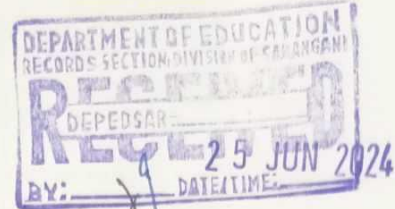 DEPARTMENT OF EDUCATION
RECORDS SECTION, DIVISION OF SARANGANI
RECEIVED
DEPEDSAR-
25 JUN 2024
BY: DATE/TIME: